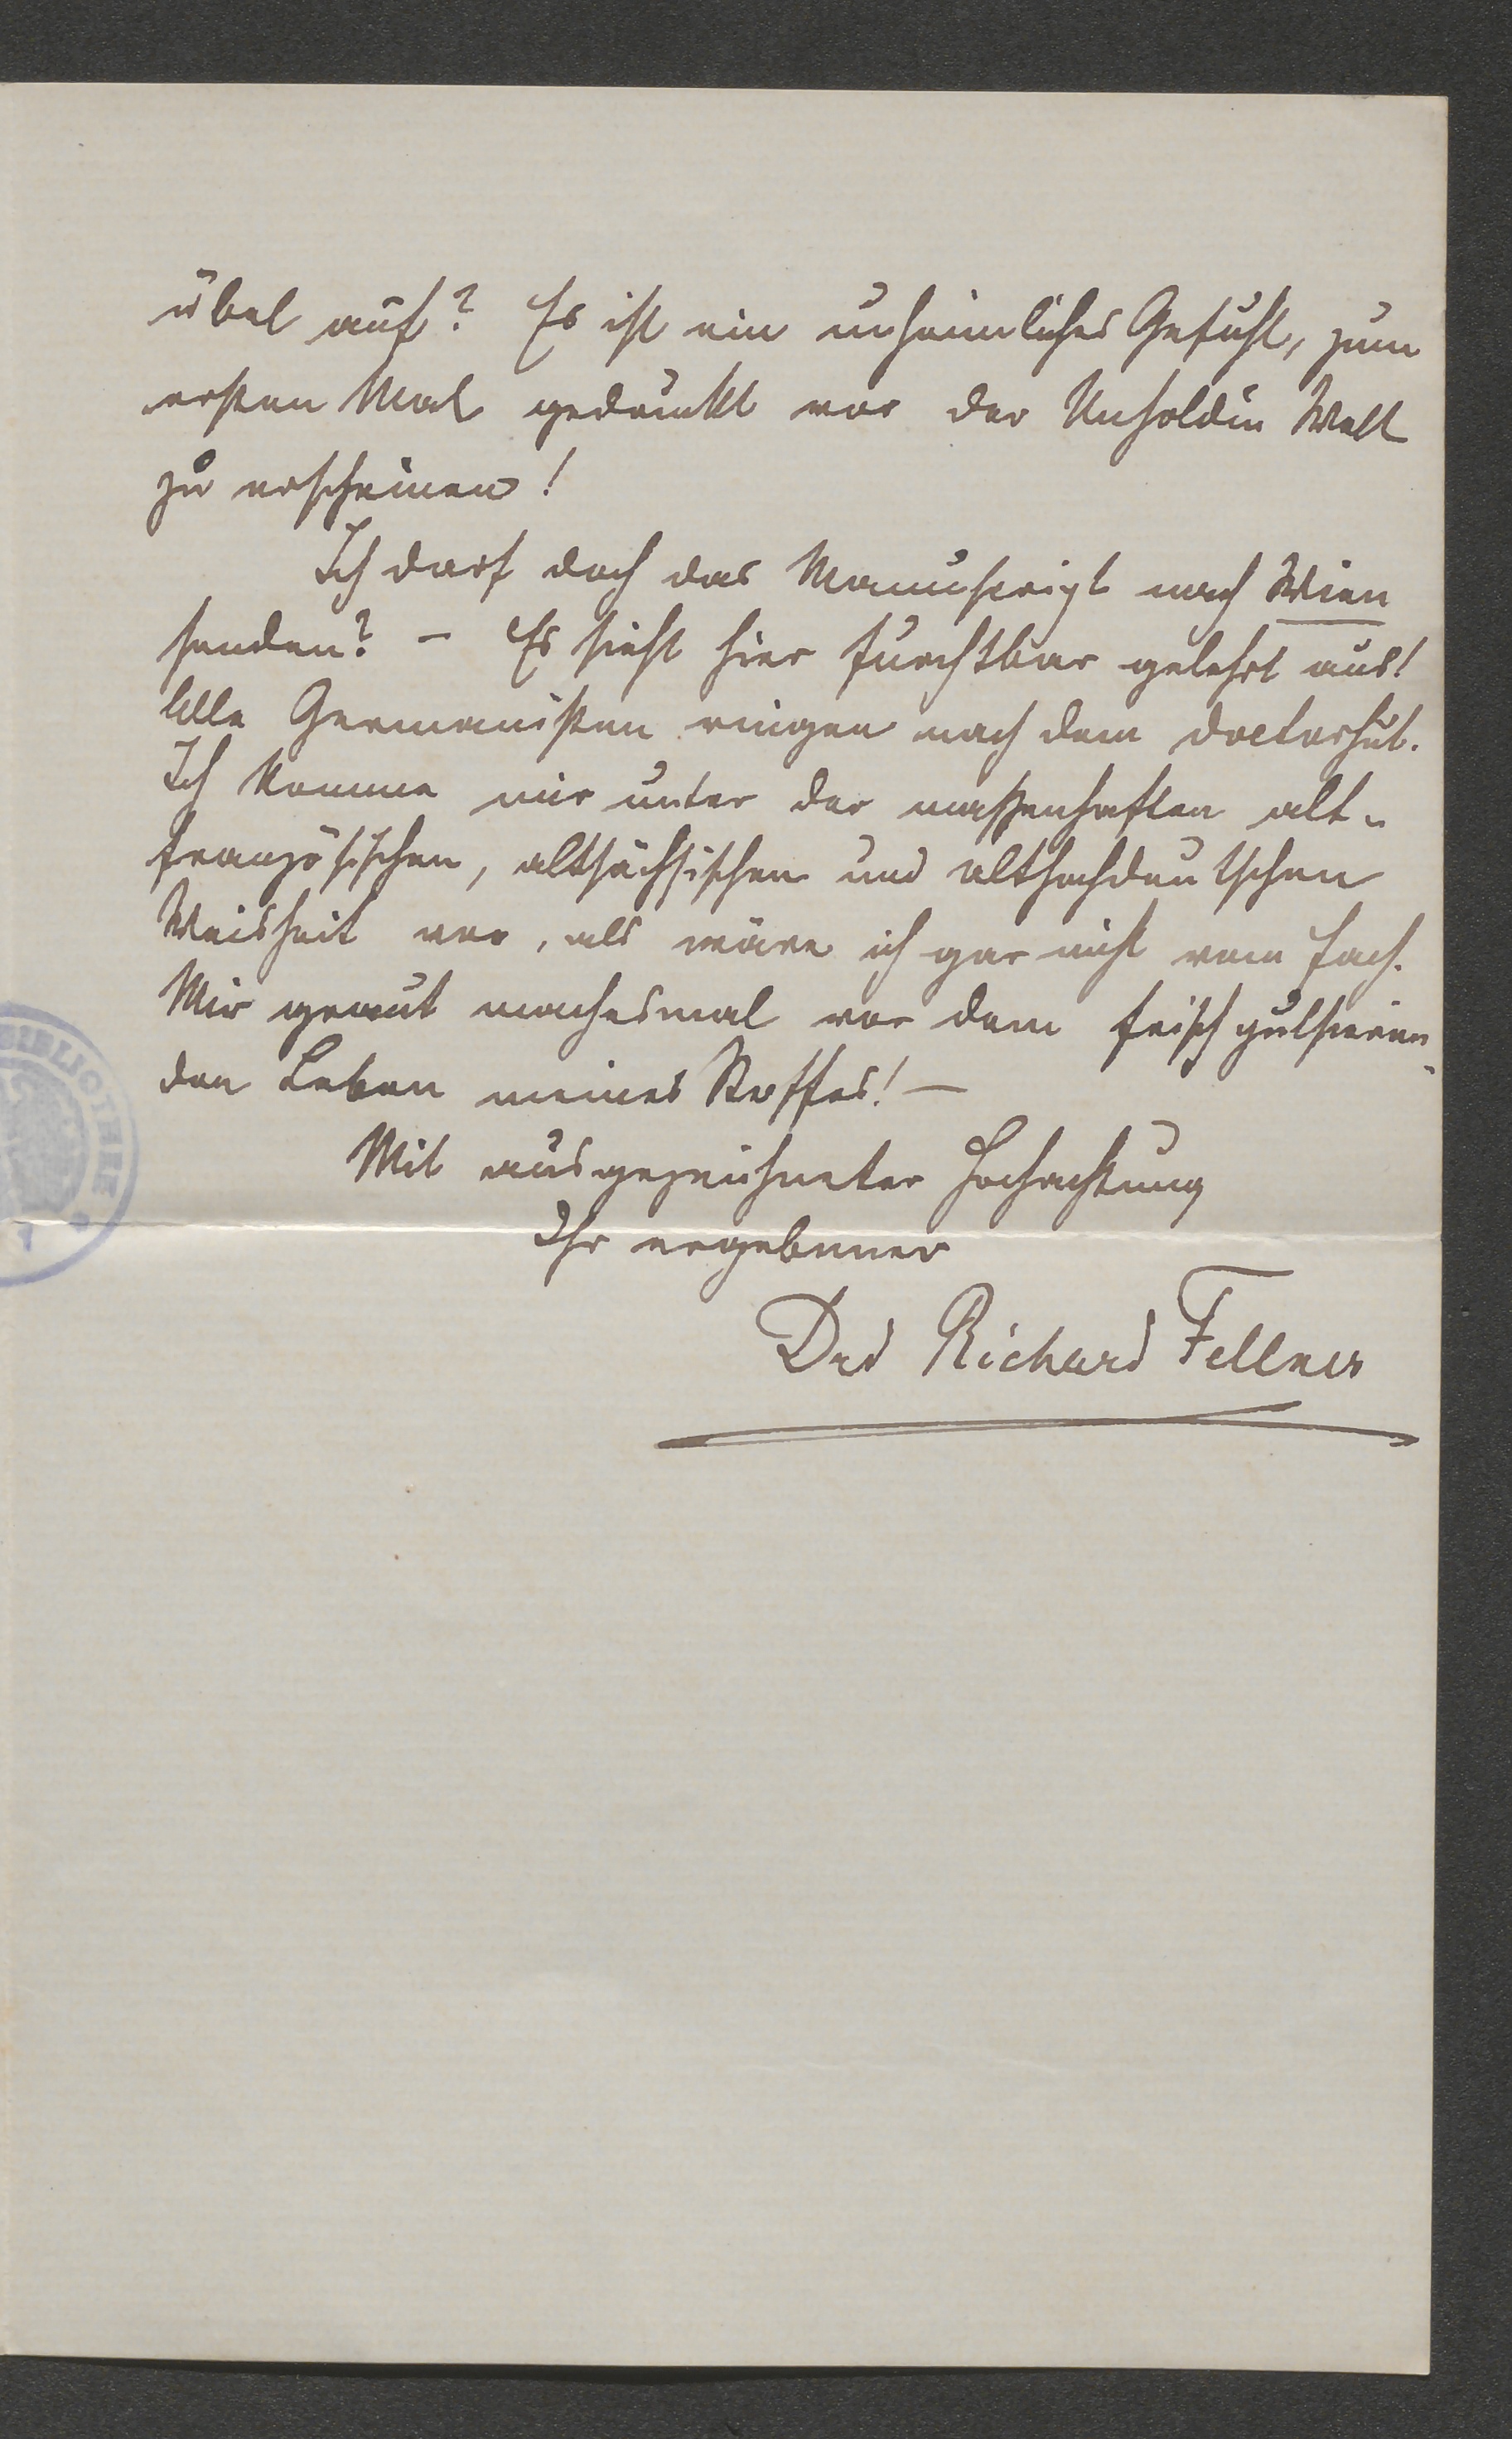 übel auf? Es ist ein unheimliches Gefühl, zum
ersten Mal gedruckt vor der Unholdin Welt
zu erscheinen!
Ich darf doch das Manuskript nach Wien
senden? – Es sieht hier furchtbar gelehrt aus!
Alle Germanisten ringen nach dem Doctorhut.
Ich komme mir unter der massenhaften alt-
französischen, altsächsischen und althochdeutschen
Weisheit vor, als wäre ich gar nicht vom Fach.
Mir graut machesmal vor dem frisch pulsieren-
den Leben meines Stoffes! –
Mit ausgezeichneter Hochachtung
Ihr ergebener
Richard Fellner
BIBLIOTHEK